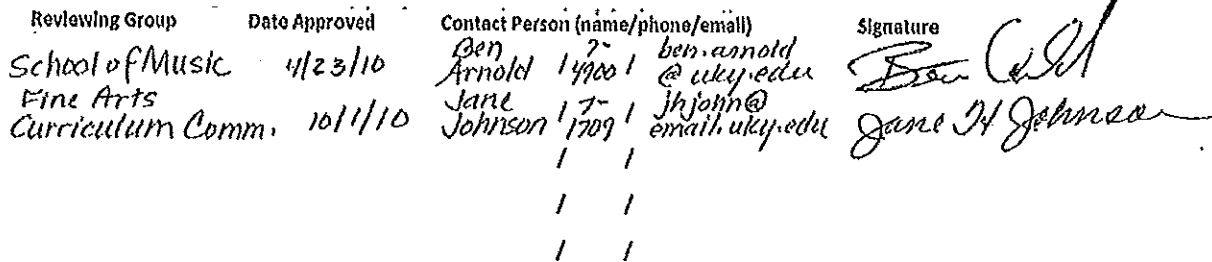 Reviewing Group Date Approved Contact Person (name/phone/email) Signature
School of Music 4/23/10 Ben Arnold / 7-4900 / ben.arnold@uky.edu Ben Arnold
Fine Arts Curriculum Comm. 10/1/10 Jane Johnson / 7-1709 / jhjohn@email.uky.edu Jane H Johnson
/ /
/ /
/ /